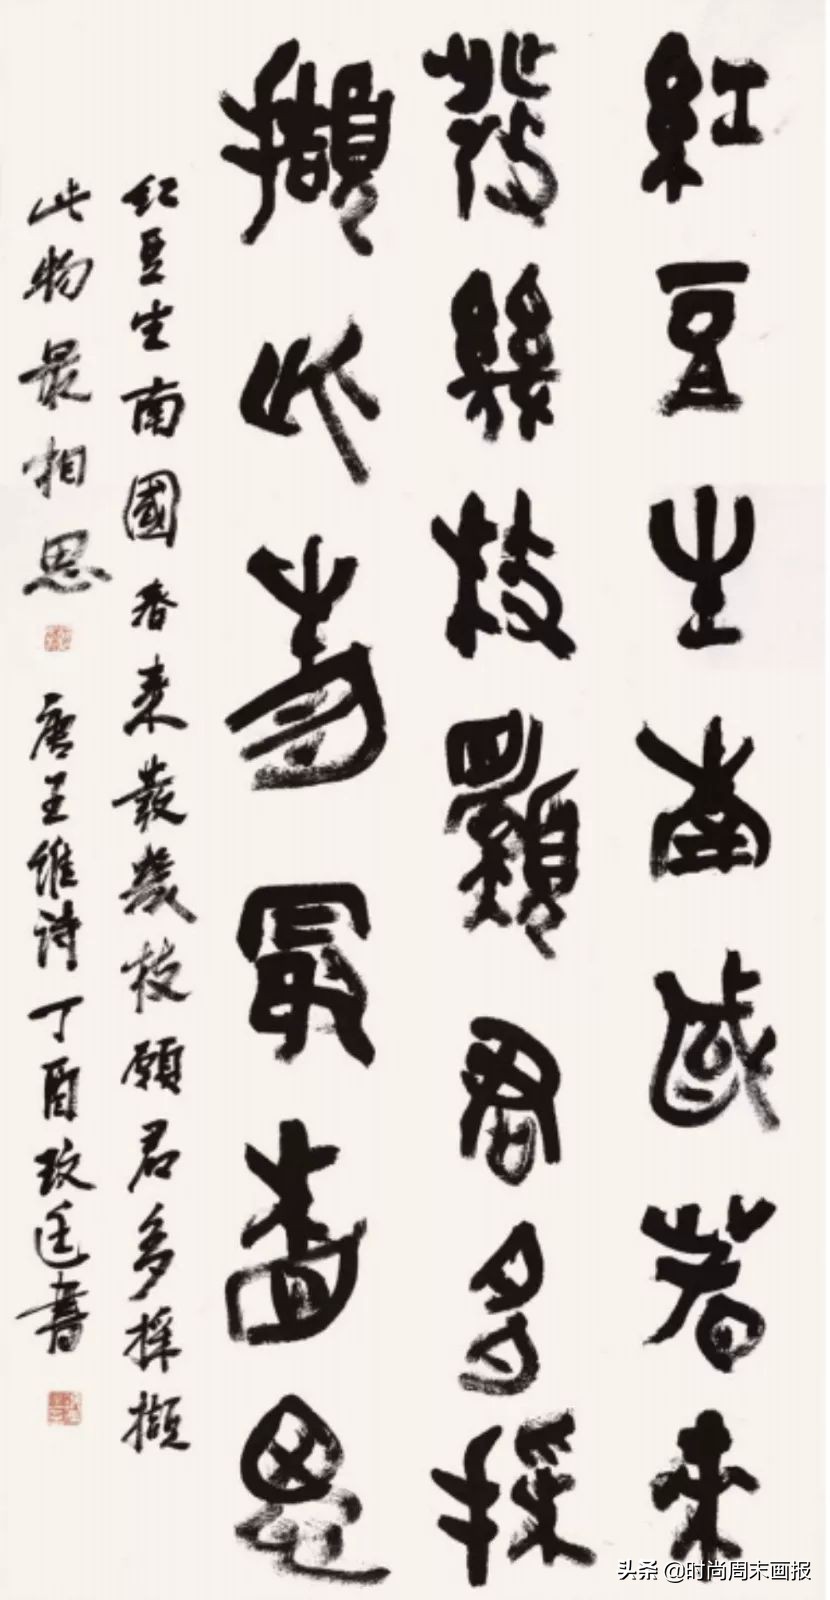 紅豆生南國春來
發幾枝願君多採
擷此物最相思
紅豆生南國春來發幾枝願君多採擷
此物最相思 唐王維詩丁酉玫廷書
头条 @时尚周末画报